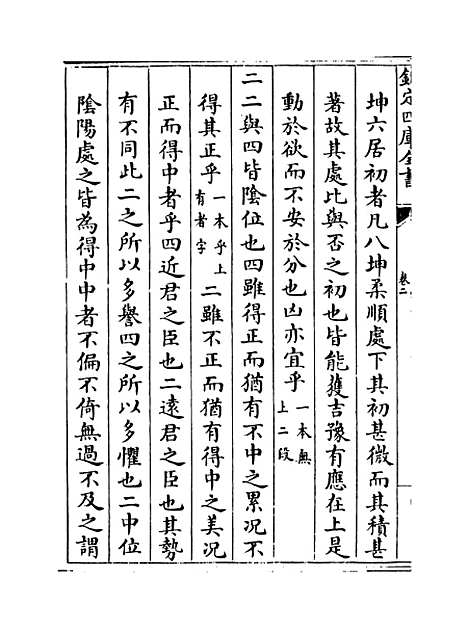 欽定四庫全書
卷二
坤六居初者凡八坤柔順處下其初甚微而其積甚
著故其處比與否之初也皆能獲吉豫有應在上是
動於欲而不安於分也凶亦宜乎一本無上二段
二二與四皆陰位也四雖得正而猶有不中之累况不
得其正乎一本乎上有者字二雖不正而猶有得中之美况
正而得中者乎四近君之臣也二遠君之臣也其勢
有不同此二之所以多譽四之所以多懼也二中位
陰陽處之皆為得中中者不偏不倚無過不及之謂